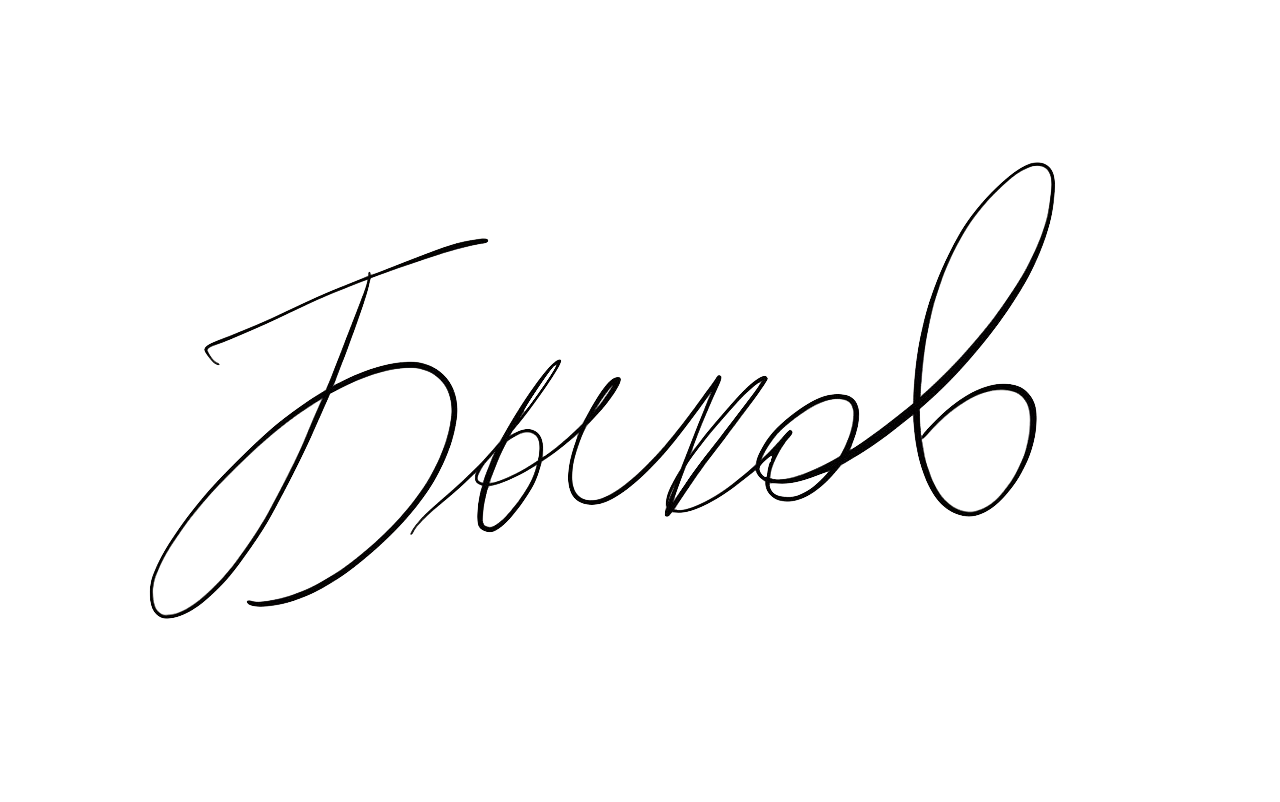 Быков